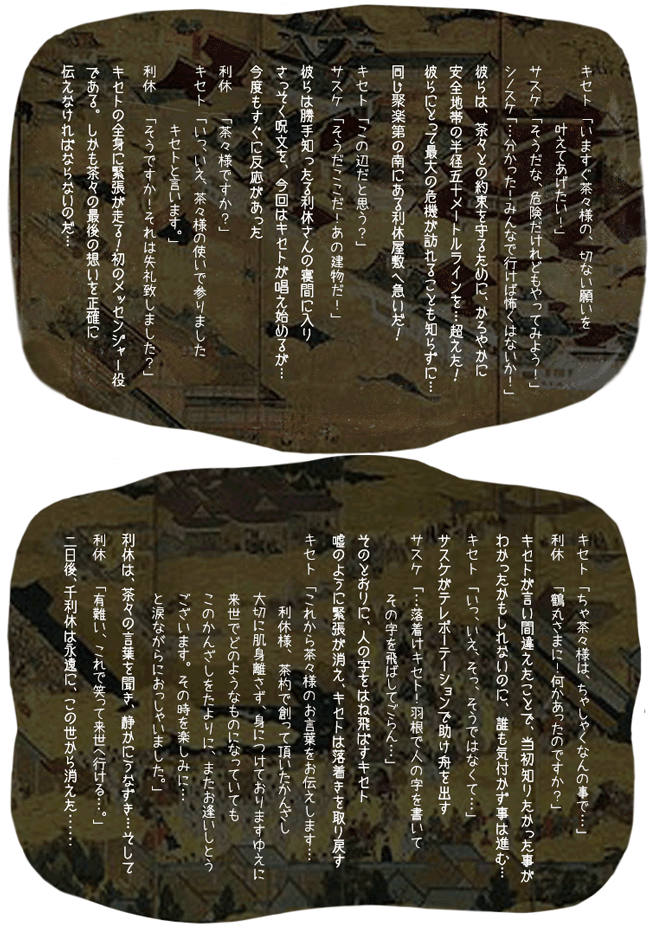 キセト「いますぐ茶々様の、切ない願いを
叶えてあげたい!」
サスケ「そうだな、危険だけれどもやってみよう!」
シノスケ「…分かった!みんなで行けば怖くはないか!」
彼らは、茶々との約束を守るために、かろやかに
安全地帯の半径五十メートルラインを…超えた!
彼らにとって最大の危機が訪れることも知らずに…
同じ聚楽第の南にある利休屋敷へ急いだ!
キセト「この辺だと思う?」
サスケ「そうだここだ!あの建物だ!」
彼らは勝手知ったる利休さんの寝間に入り
さっそく呪文を、今回はキセトが唱え始めるが…
今度もすぐに反応があった
利休 「茶々様ですか?」
キセト「いっ、いえ、茶々様の使いで参りました
キセトと言います。」
利休 「そうですか!それは失礼致しました?」
キセトの全身に緊張が走る!初のメッセンジャー役
である。しかも茶々の最後の想いを正確に
伝えなければならないのだ…
キセト「ちゃ茶々様は、ちゃしゃくなんの事で…」
利休 「鶴丸さまに!何かあったのですか?」
キセトが言い間違えたことで、当初知りたかった事が
わかったかもしれないのに、誰も気付かず事は進む…
キセト「いっ、いえ、そっ、そうではなくて…」
サスケがテレポーテーションで助け舟を出す
サスケ「…落着けキセト!羽根で人の字を書いて
その字を飛ばしてごらん…」
そのとおりに、人の字をはね飛ばすキセト
嘘のように緊張が消え、キセトは落着きを取り戻す
キセト「これから茶々様のお言葉をお伝えします…
利休様、茶杓で創って頂いたかんざし
大切に肌身離さず、身につけておりますゆえに
来世でどのようなものになっていても
このかんざしをたよりに、またお逢いしとう
ございます。その時を楽しみに…
と涙ながらにおっしゃいました。」
利休は、茶々の言葉を聞き、静かにうなずき…そして
利休 「有難い、これで笑って来世へ行ける…。」
二日後、千利休は永遠に、この世から消えた……